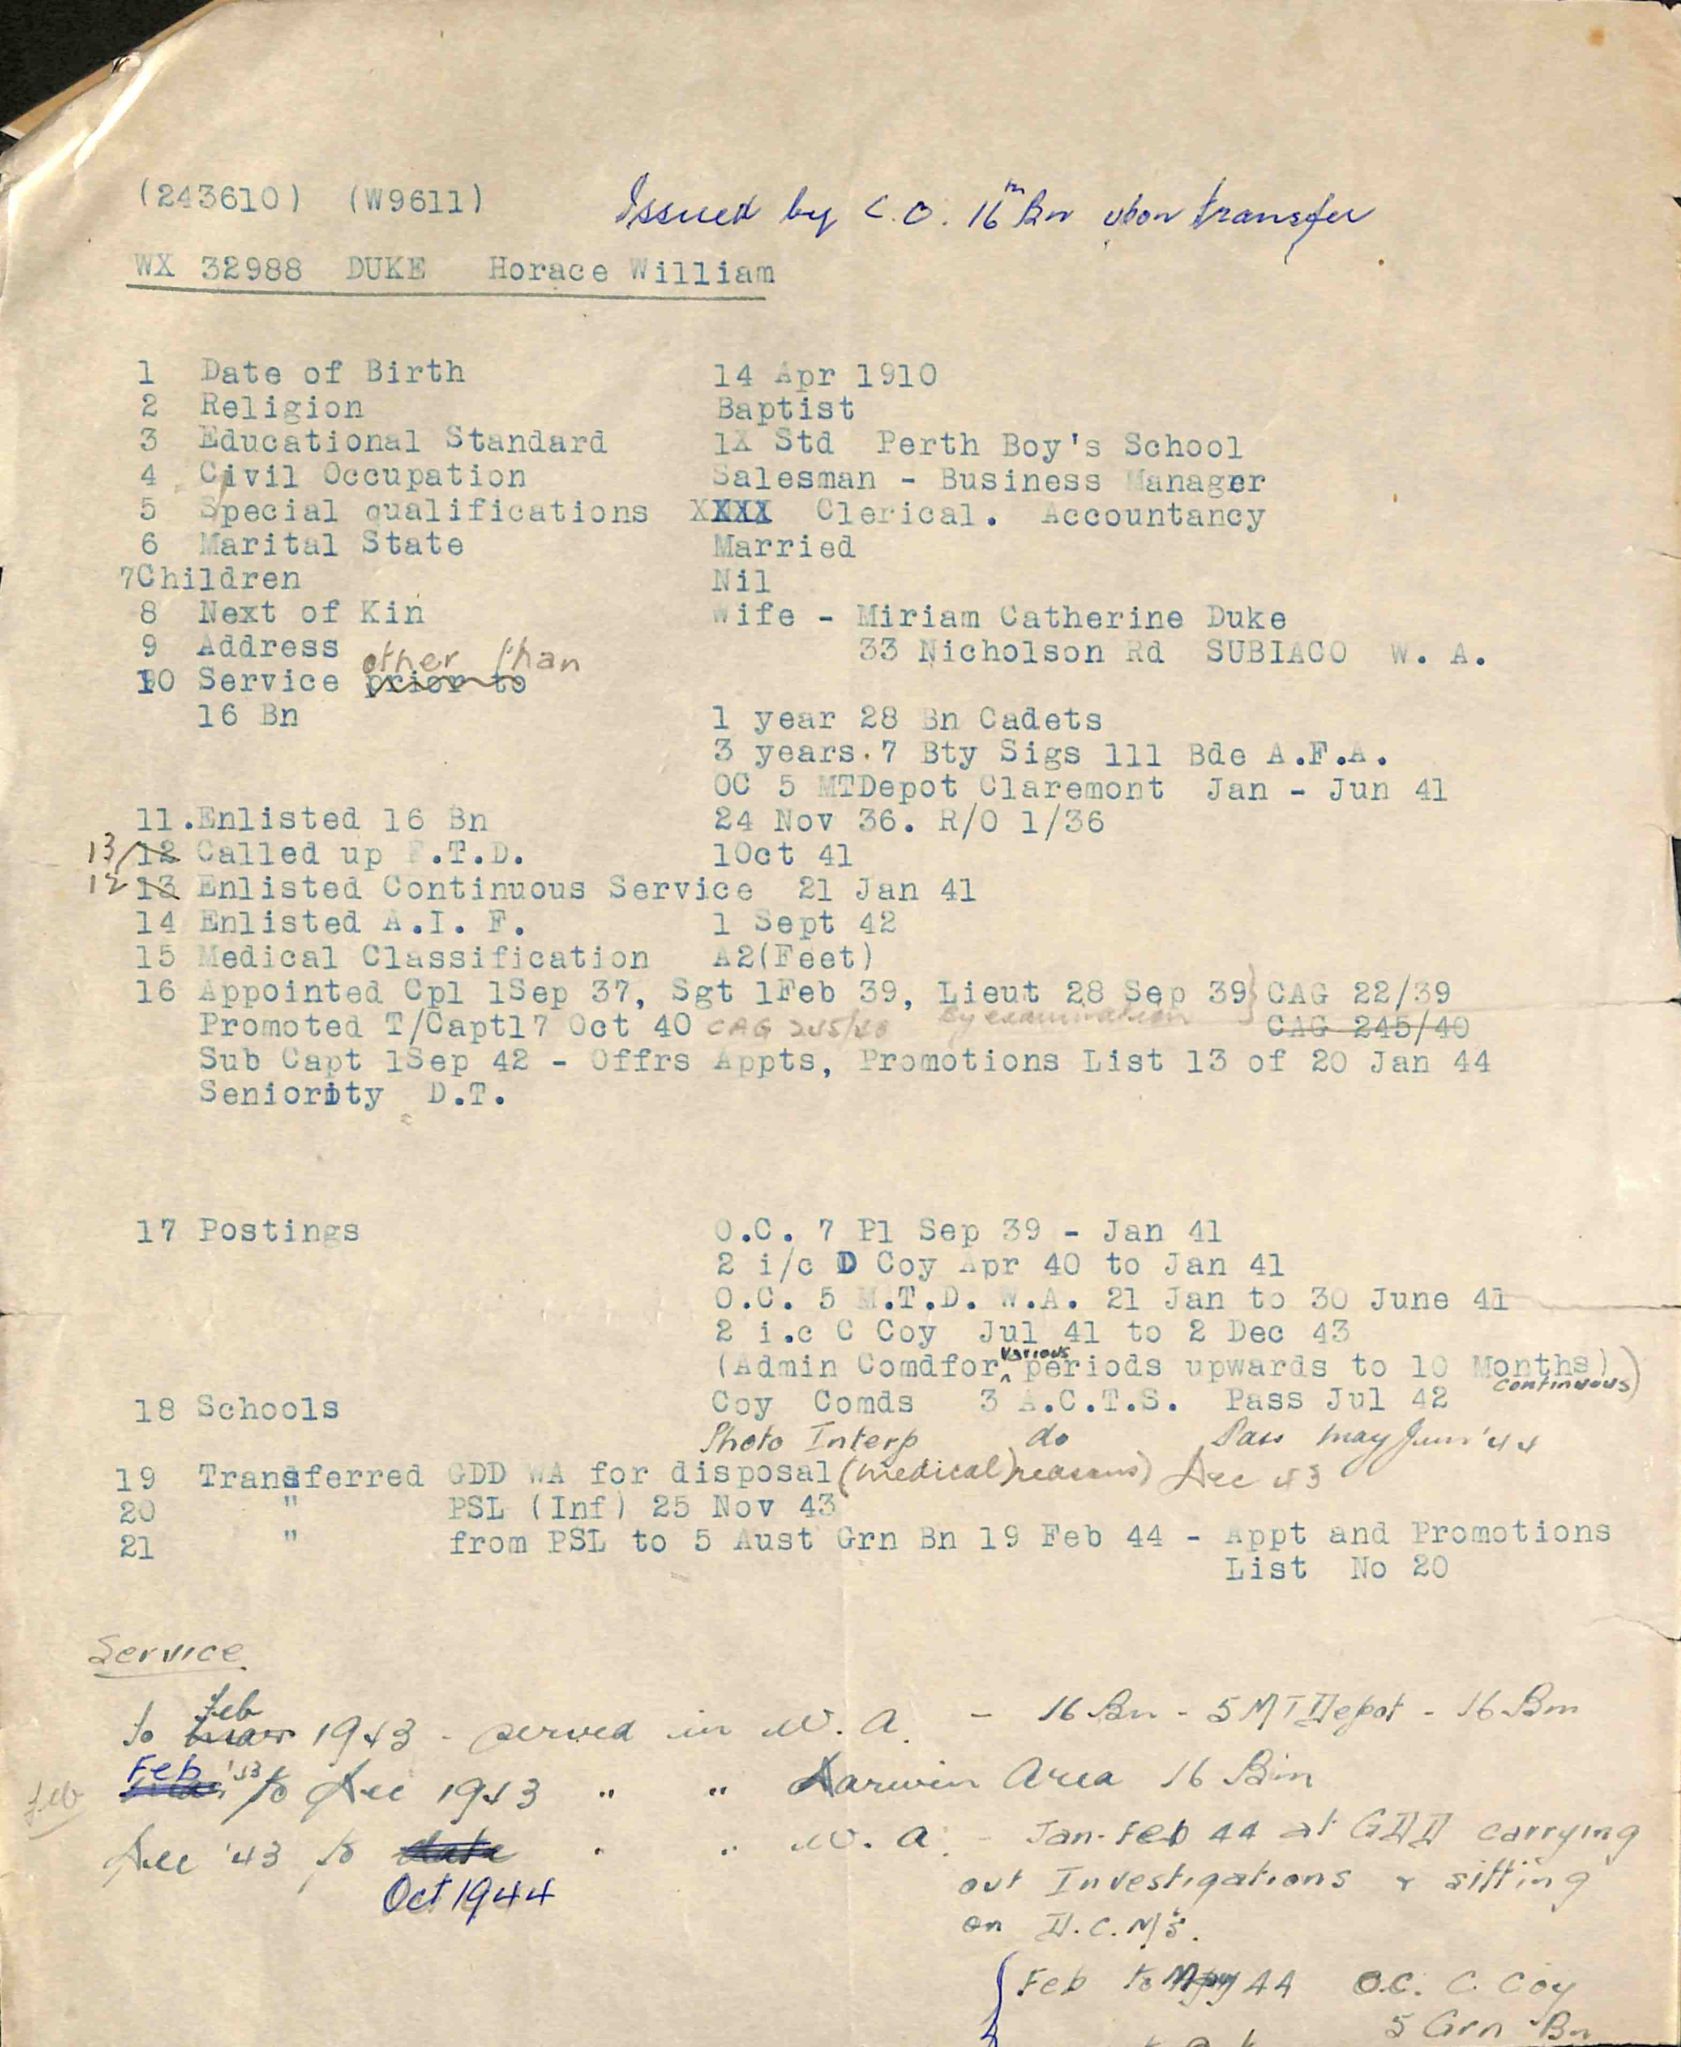 (243610) (W9611) Issued by C.O. 16th Bn upon transfer
WX 32988 DUKE Horace William
1 Date of Birth 14 Apr 1910
2 Religion Baptist
3 Educational Standard 1X Std Perth Boy's School
4 Civil Occupation Salesman - Business Manager
5 Special qualifications XXXX Clerical. Accountancy
6 Marital State Married
7Children Nil
8 Next of Kin Wife - Miriam Catherine Duke
9 Address 33 Nicholson Rd SUBIACO W. A.
other than
10 Service prior to
16 Bn 1 year 28 Bn Cadets
3 years.7 Bty Sigs 111 Bde A.F.A.
OC 5 MTDepot Claremont Jan - Jun 41
11.Enlisted 16 Bn 24 Nov 36. R/O 1/36
13/12 Called up F.T.D. 1Oct 41
12 13 Enlisted Continuous Service 21 Jan 41
14 Enlisted A.I. F. 1 Sept 42
15 Medical Classification A2(Feet)
16 Appointed Cpl 1Sep 37, Sgt 1Feb 39, Lieut 28 Sep 39} CAG 22/39
Promoted T/Capt17 Oct 40 CAG 245/40 By examination CAG 245/40
Sub Capt 1Sep 42 - Offrs Appts, Promotions List 13 of 20 Jan 44
Seniority D.T.
17 Postings O.C. 7 Pl Sep 39 - Jan 41
2 i/c D Coy Apr 40 to Jan 41
O.C. 5 M.T.D. W.A. 21 Jan to 30 June 41
2 i.c C Coy Jul 41 to 2 Dec 43
(Admin Comdfor various periods upwards to 10 Months)
continuous)
18 Schools Coy Comds 3 A.C.T.S. Pass Jul 42
Photo Interp do Pass May June '44
19 Transferred GDD WA for disposal (medical reasons) Dec 43
20 " PSL (Inf) 25 Nov 43
21 " from PSL to 5 Aust Grn Bn 19 Feb 44 - Appt and Promotions
List No 20
Service
Feb
to 1943 - served in W. A. - 16 Bn - 5 M T Depot - 16 Bn
Feb Feb '43 to Dec 1943 " " Darwin Area 16 Bn
Dec '43 to date " " W. A. - Jan-Feb 44 at GDD carrying
Oct 1944 out Investigations & sitting
on D.C.M's.
Feb to May 44 O.C. C Coy
5 Grn Bn